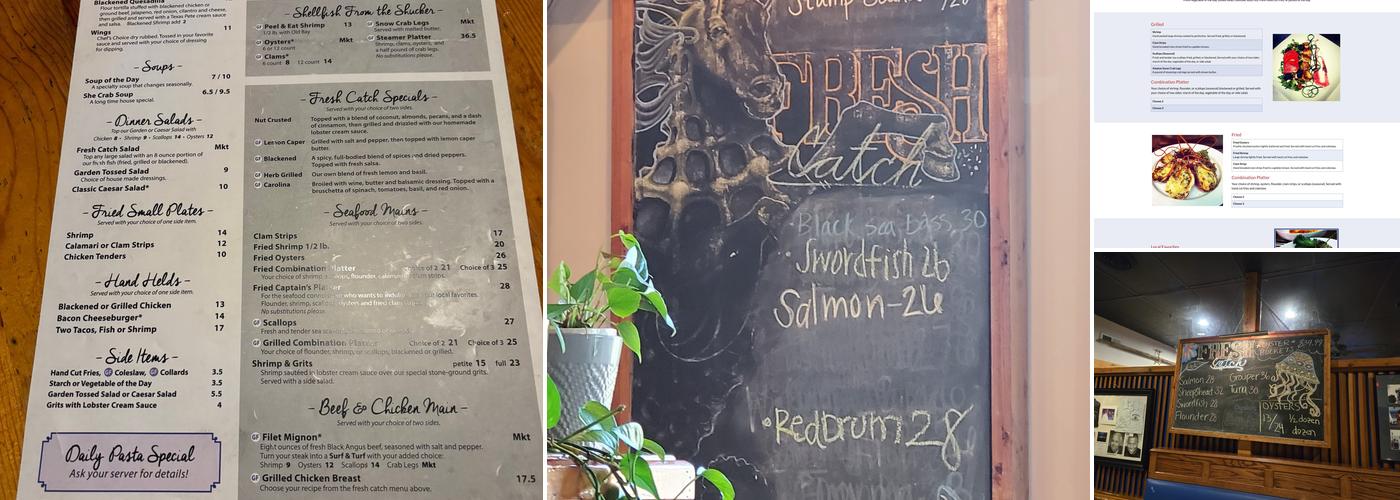 Blackened Quesadilla
Flour tortilla stuffed with blackened chicken or
ground beef, jalapeno, red onion, cilantro, and cheese,
then grilled and served with a Texas Pete cream sauce
and salsa. Blackened Shrimp add 2
Wings 11
Chef's Choice dry rubbed. Tossed in your favorite
sauce and served with your choice of dressing
for dipping.
– Soups –
Soup of the Day 7 / 10
A specialty soup that changes seasonally.
She Crab Soup 6.5 / 9.5
A long time house special.
– Dinner Salads –
Top our Garden or Caesar Salad with
Chicken 8 • Shrimp 9 • Scallops 14 • Oysters 12
Fresh Catch Salad Mkt
Top any large salad with an 8 ounce portion of
our fresh fish (fried, grilled or blackened).
Garden Tossed Salad 9
Choice of house made dressings.
Classic Caesar Salad* 10
– Fried Small Plates –
Served with your choice of one side item.
Shrimp 14
Calamari or Clam Strips 12
Chicken Tenders 10
– Hand Helds –
Served with your choice of one side item.
Blackened or Grilled Chicken 13
Bacon Cheeseburger* 14
Two Tacos, Fish or Shrimp 17
– Side Items –
Hand Cut Fries, GF Coleslaw, GF Collards 3.5
Starch or Vegetable of the Day 3.5
Garden Tossed Salad or Caesar Salad 5.5
Grits with Lobster Cream Sauce 4
Daily Pasta Special
Ask your server for details!
– Shellfish From the Shucker –
GF Peel & Eat Shrimp 13
1/2 lb. with Old Bay
GF Oysters* Mkt
6 or 12 count
GF Clams*
6 count 8 12 count 14
GF Snow Crab Legs Mkt
Served with melted butter.
GF Steamer Platter 36.5
Shrimp, clams, oysters, and
a half pound of crab legs.
No substitutions please.
– Fresh Catch Specials –
Served with your choice of two sides.
Nut Crusted Topped with a blend of coconut, almonds, pecans, and a dash
of cinnamon, then grilled and drizzled with our homemade
lobster cream sauce.
GF Lemon Caper Grilled with salt and pepper, then topped with lemon caper
butter.
GF Blackened A spicy, full-bodied blend of spices and dried peppers.
Topped with fresh salsa.
GF Herb Grilled Our own blend of fresh lemon and basil.
GF Carolina Broiled with wine, butter and balsamic dressing. Topped with a
bruschetta of spinach, tomatoes, basil, and red onion.
– Seafood Mains –
Served with your choice of two sides.
Clam Strips 17
Fried Shrimp 1/2 lb. 20
Fried Oysters 26
Fried Combination Platter Choice of 2 21 Choice of 3 25
Your choice of shrimp, flounder, strips.
Fried Captain's Platter 28
For the seafood who wants to our local favorites.
Flounder, shrimp, oysters and fried clam
No substitutions please.
GF Scallops 27
Fresh and tender sea
GF Grilled Combination Platter Choice of 2 21 Choice of 3 25
Your choice of flounder, shrimp, or scallops, blackened or grilled.
Shrimp & Grits petite 15 full 23
Shrimp sautéed in lobster cream sauce over our special stone-ground grits.
Served with a side salad.
– Beef & Chicken Main –
Served with your choice of two sides.
GF Filet Mignon* Mkt
Eight ounces of fresh Black Angus beef, seasoned with salt and pepper.
Turn your steak into a Surf & Turf with your added choice:
Shrimp 9 Oysters 12 Scallops 14 Crab Legs Mkt
GF Grilled Chicken Breast 17.5
Choose your recipe from the fresh catch menu above.
FRESH
Catch
Black sea bass 30
• Swordfish 26
Salmon-26
• Redbrum 28
Grilled
Combination Platter
Fried
Combination Platter
Local Favorites
FRESH
Catch
Salmon 28
Sheepshead 32
Swordfish 28
Flounder 28
Grouper 36
Tuna 30
OYSTER
BUCKET $39.99
OYSTERS
13/ ½ dozen
24 dozen